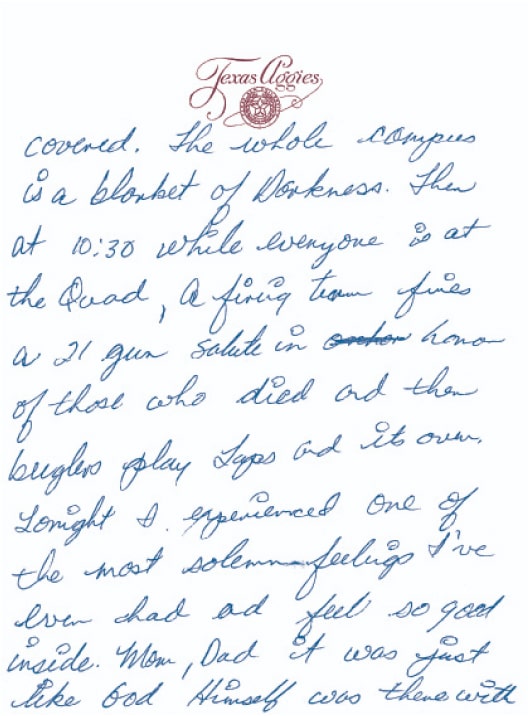 Texas Aggies
covered. The whole campus
is a blanket of Darkness. Then
at 10:30 while everyone is at
the Quad, A firing team fires
a 21 gun salute in honor
of those who died and then
buglers play Taps and its over.
Tonight I experienced one of
the most solemn feelings I've
ever had and feel so good
inside. Mom, Dad it was just
like God Himself was there with